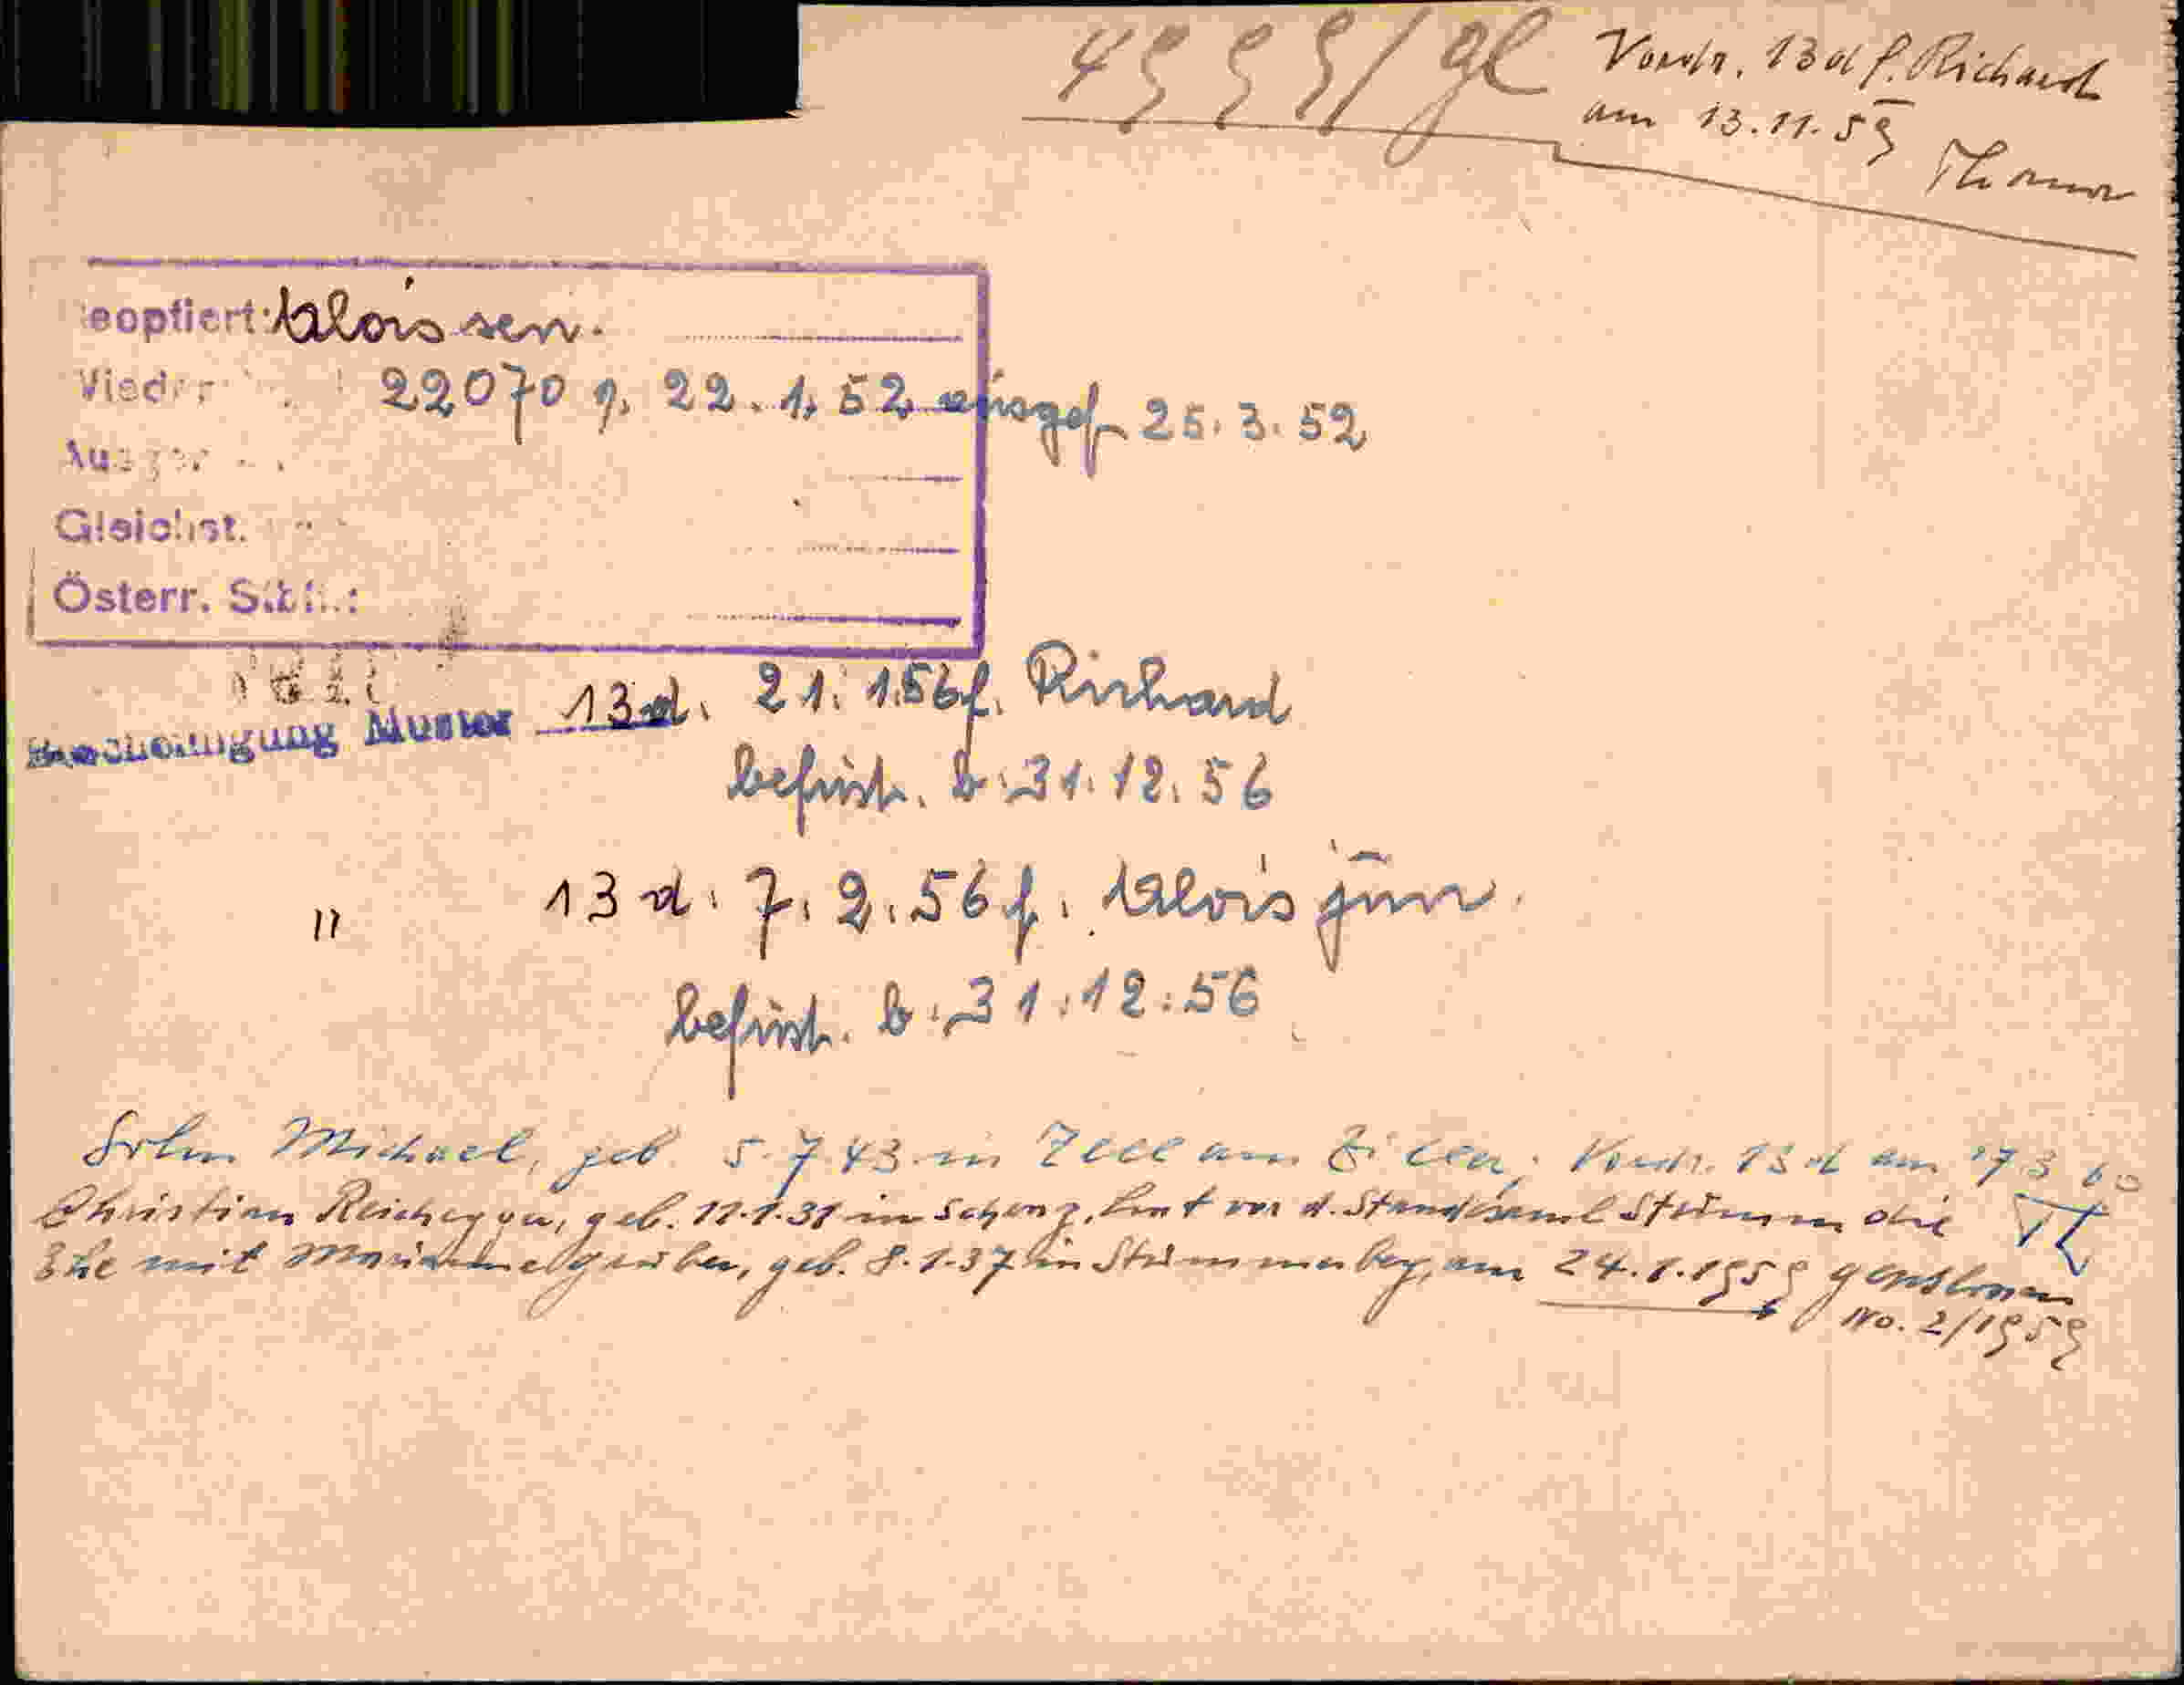 4999/gl
Vordr. 13 d f. Richard
am 13.11.59
eoptiert: Alois sen.
22070 v. 22.1.52 ausgef. 25.3.52
Gleichst.
Österr. Stbü.:
Bescheinigung Muster 13 d. 21.1.56 f. Richard
befrist. b. 31.12.56
" 13 d. 7.2.56 f. Alois jun.
befrist. b. 31.12.56
Sohn Michael, geb. 5.7.43 in Zell am Ziller, Vordr. 13 d am 17 3 60
Christian Reichegger, geb. in Schwaz, hat vor d. Standesamt Stumm die
Ehe mit Marianne Gruber, geb. 8.1.37 in Stummerberg, am 24.1.1959 geschlossen
No. 2/1959